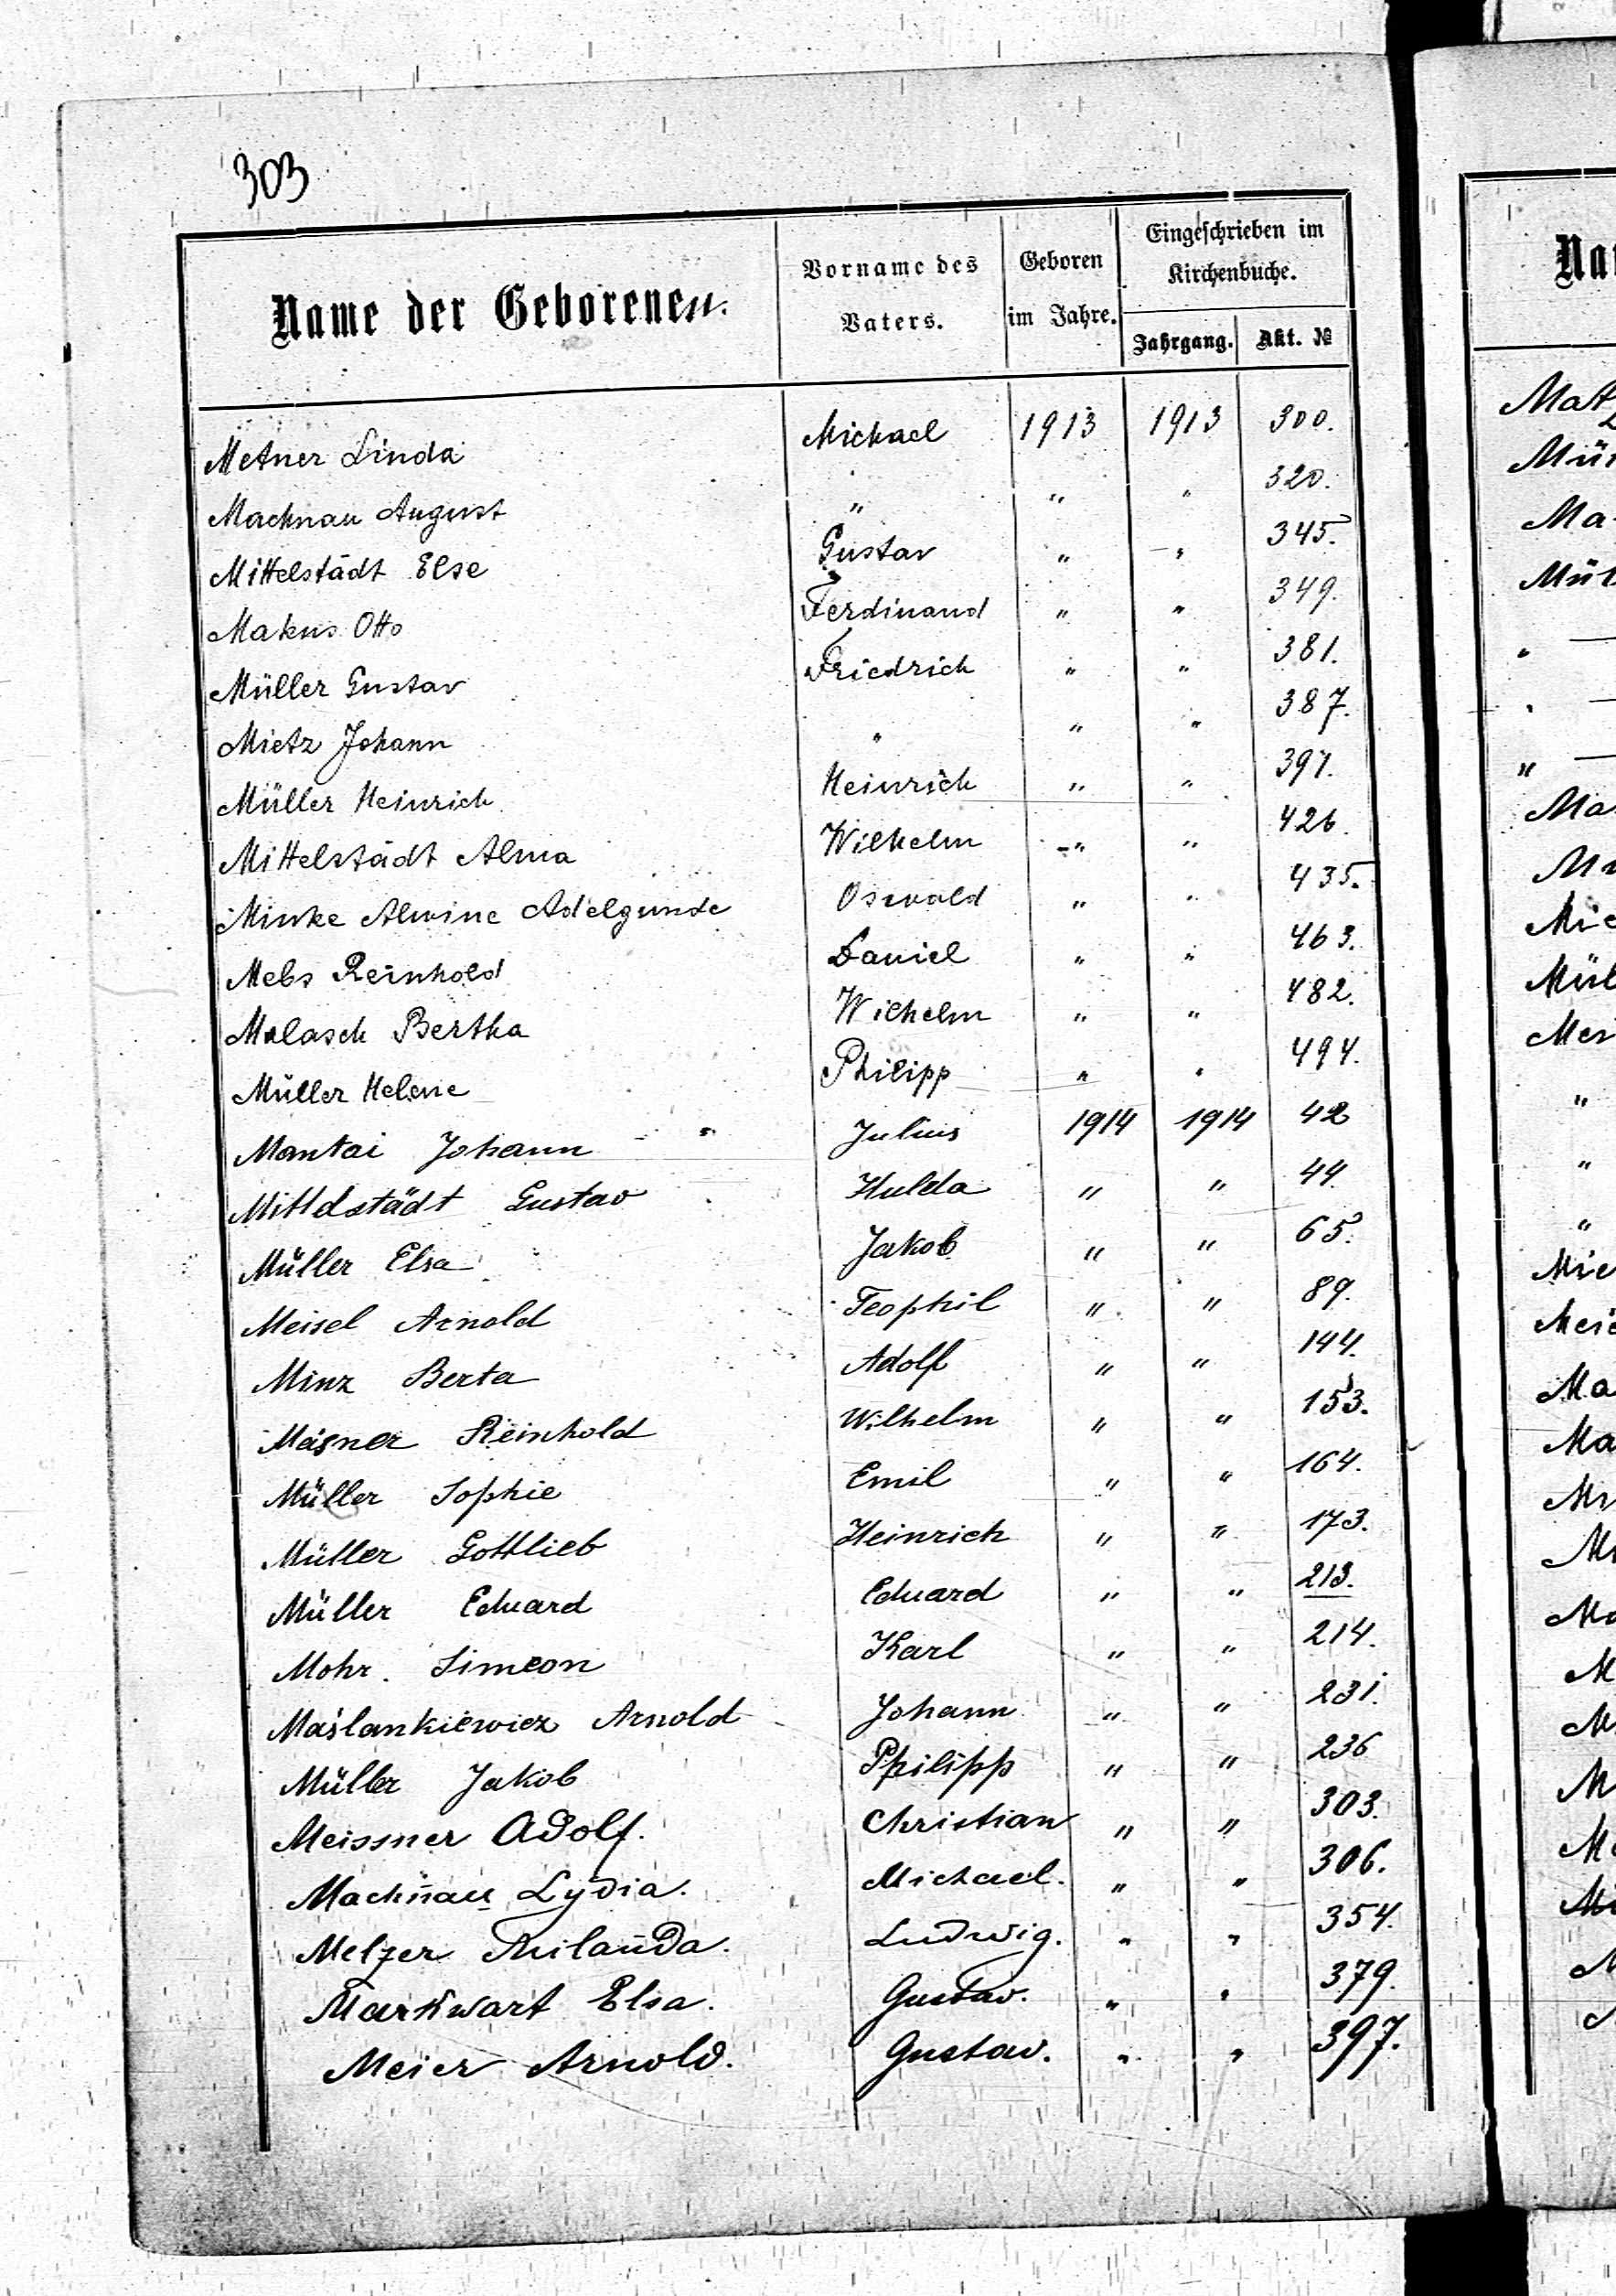 303
Name der Geborenen. Vorname des Vaters. Geboren im Jahre. Eingeschrieben im Kirchenbuche. Jahrgang. Akt. №
Metner Linda Michael 1913 1913 300.
Machnau August " " " 320.
Mittelstädt Else Gustav " " 345.
Makus Otto Ferdinand " " 349.
Müller Gustav Friedrich " " 381.
Mietz Johann " " " 387.
Müller Heinrich Heinrich " " 397.
Mittelstädt Alma Wilhelm " " 426.
Minke Alwine Adelgunde Oswald " " 435.
Mebs Reinhold Daniel " " 463.
Malasch Bertha Wilhelm " " 482.
Müller Helene Philipp " " 494.
Mantai Johann Julius 1914 1914 42
Mittelstädt Gustav Hulda " " 44.
Müller Elsa Jakob " " 65.
Meisel Arnold Teophil " " 89.
Minz Berta Adolf " " 144.
Mäsner Reinhold Wilhelm " " 153.
Müller Sophie Emil " " 164.
Müller Gottlieb Heinrich " " 173.
Müller Eduard Eduard " " 213.
Mohr. Simeon Karl " " 214.
Maślankiewicz Arnold Johann " " 231.
Müller Jakob Philipp " " 236
Meissner Adolf. Christian " " 303.
Machnau Lydia. Michael. " " 306.
Melzer Ludwig. " " 354.
Markwart Elsa. Gustav. " " 379.
Meier Arnold. Gustav. " " 397.